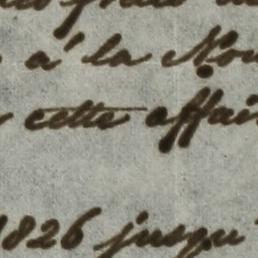 à la Nou
cette affair
1826 jusqu'